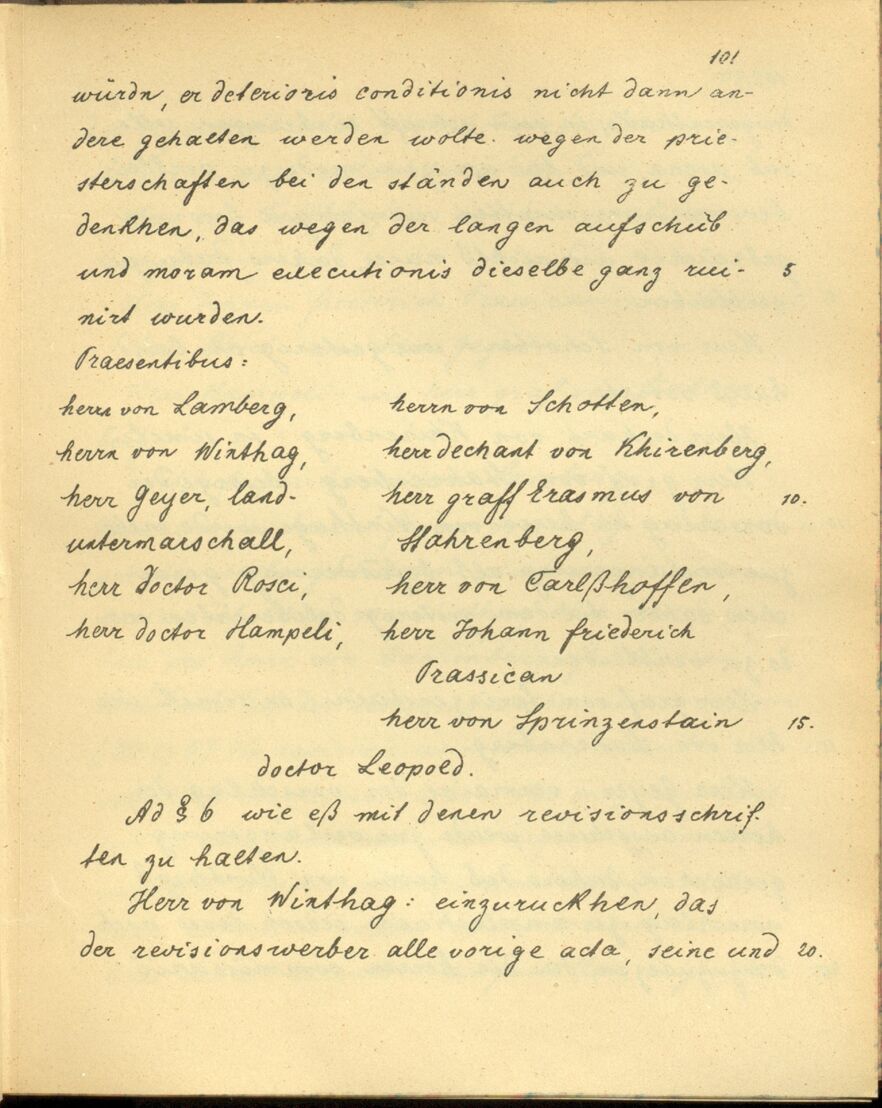 101
würdn, er deterioris conditionis nicht dann an-
dere gehalten werden wolte. wegen der prie-
sterschaften bei den ständen auch zu ge-
denkhen, das wegen der langen aufschub
und moram executionis dieselbe ganz rui- 5
nirt wurden.
Praesentibus:
herrn von Lamberg, herrn von Schotten,
herrn von Winthag, herr dechant von Khirenberg,
herr Geyer, land- herr graff Erasmus von 10.
untermarschall, Stahrenberg,
herr doctor Rosci, herr von Carlßhoffen,
herr doctor Hampeli, herr Johann friederich
Prassican
herr von Sprinzenstain 15.
doctor Leopold.
Ad § 6 wie eß mit denen revisionsschrif-
ten zu halten.
Herr von Winthag: einzuruckhen, das
der revisionswerber alle vorige acta, seine und 20.